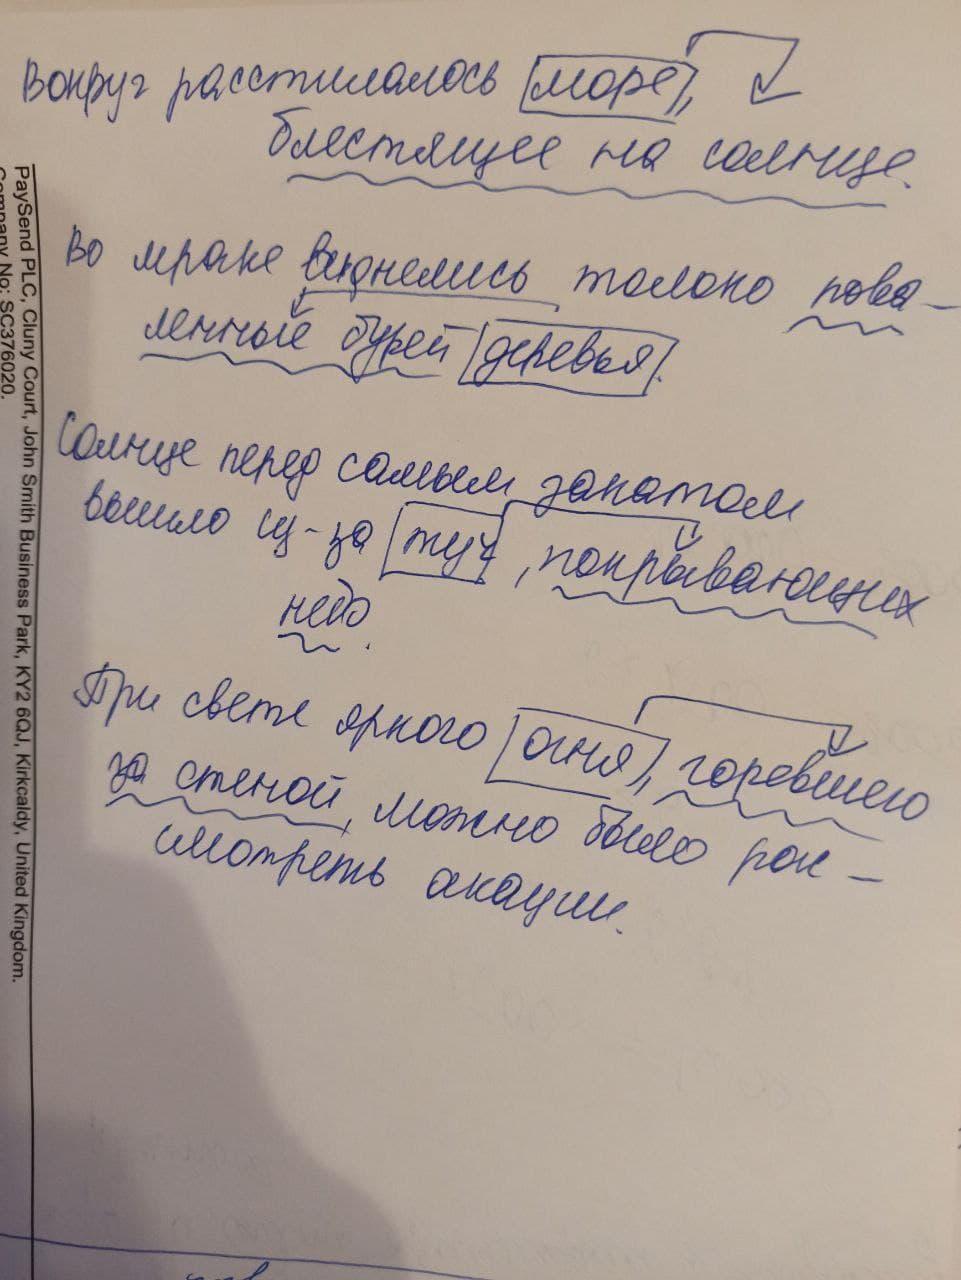 Вокруг расстилалось море,
блестящее на солнце.
Во мраке виднелись только пова-
ленные бурей деревья.
Солнце перед самым закатом
вышло из-за туч, покрывающих
небо.
При свете яркого огня, горевшего
за стеной, можно было рас-
смотреть акации.
PaySend PLC, Cluny Court, John Smith Business Park, KY2 6QJ, Kirkcaldy, United Kingdom.
Company No: SC376020.